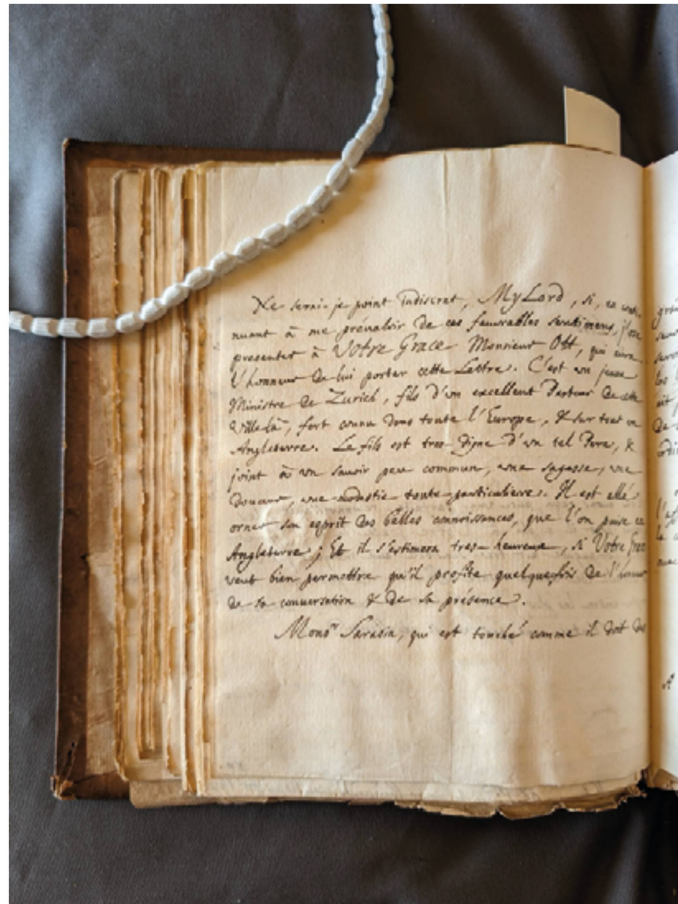 Ne serai-je point indiscret, MyLord, si, en conti-
nuant à me prévaloir de ces favorables sentimens, j'ose
presenter à Votre Grace Monsieur Ott, qui aura
l'honneur de lui porter cette Lettre. C'est un jeune
Ministre de Zurich, fils d'un excellent Pasteur de cette
Ville là, fort connu dans toute l'Europe, & sur tout en
Angleterre. Le fils est tres digne d'un tel Pere, &
joint à un savoir peu commun, une sagesse, une
douceur, une modestie toute particuliere. Il est allé
orner son esprit des belles connoissances, que l'on puise en
Angleterre; Et il s'estimera tres-heureux, si Votre Grace
veut bien permettre qu'il profite quelquefois de l'honneur
de sa conversation & de sa présence.
Monsr Sarasin, qui est touché comme il doit des